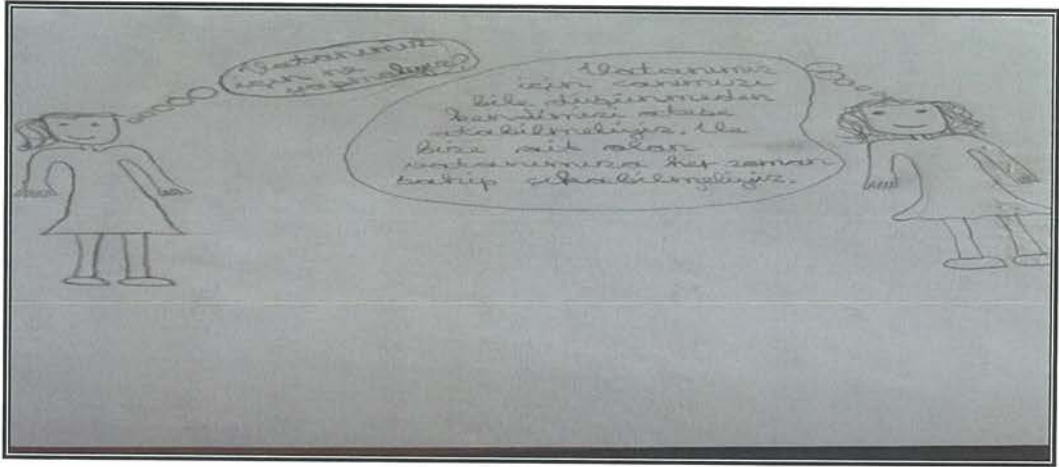 Vatanımız
için ne
yapmalıyız?
Vatanımız
için canımızı
bile düşünmeden
kendimizi ateşe
atabilmeliyiz. Ve
bize ait olan
vatanımıza her zaman
sahip çıkabilmeliyiz.